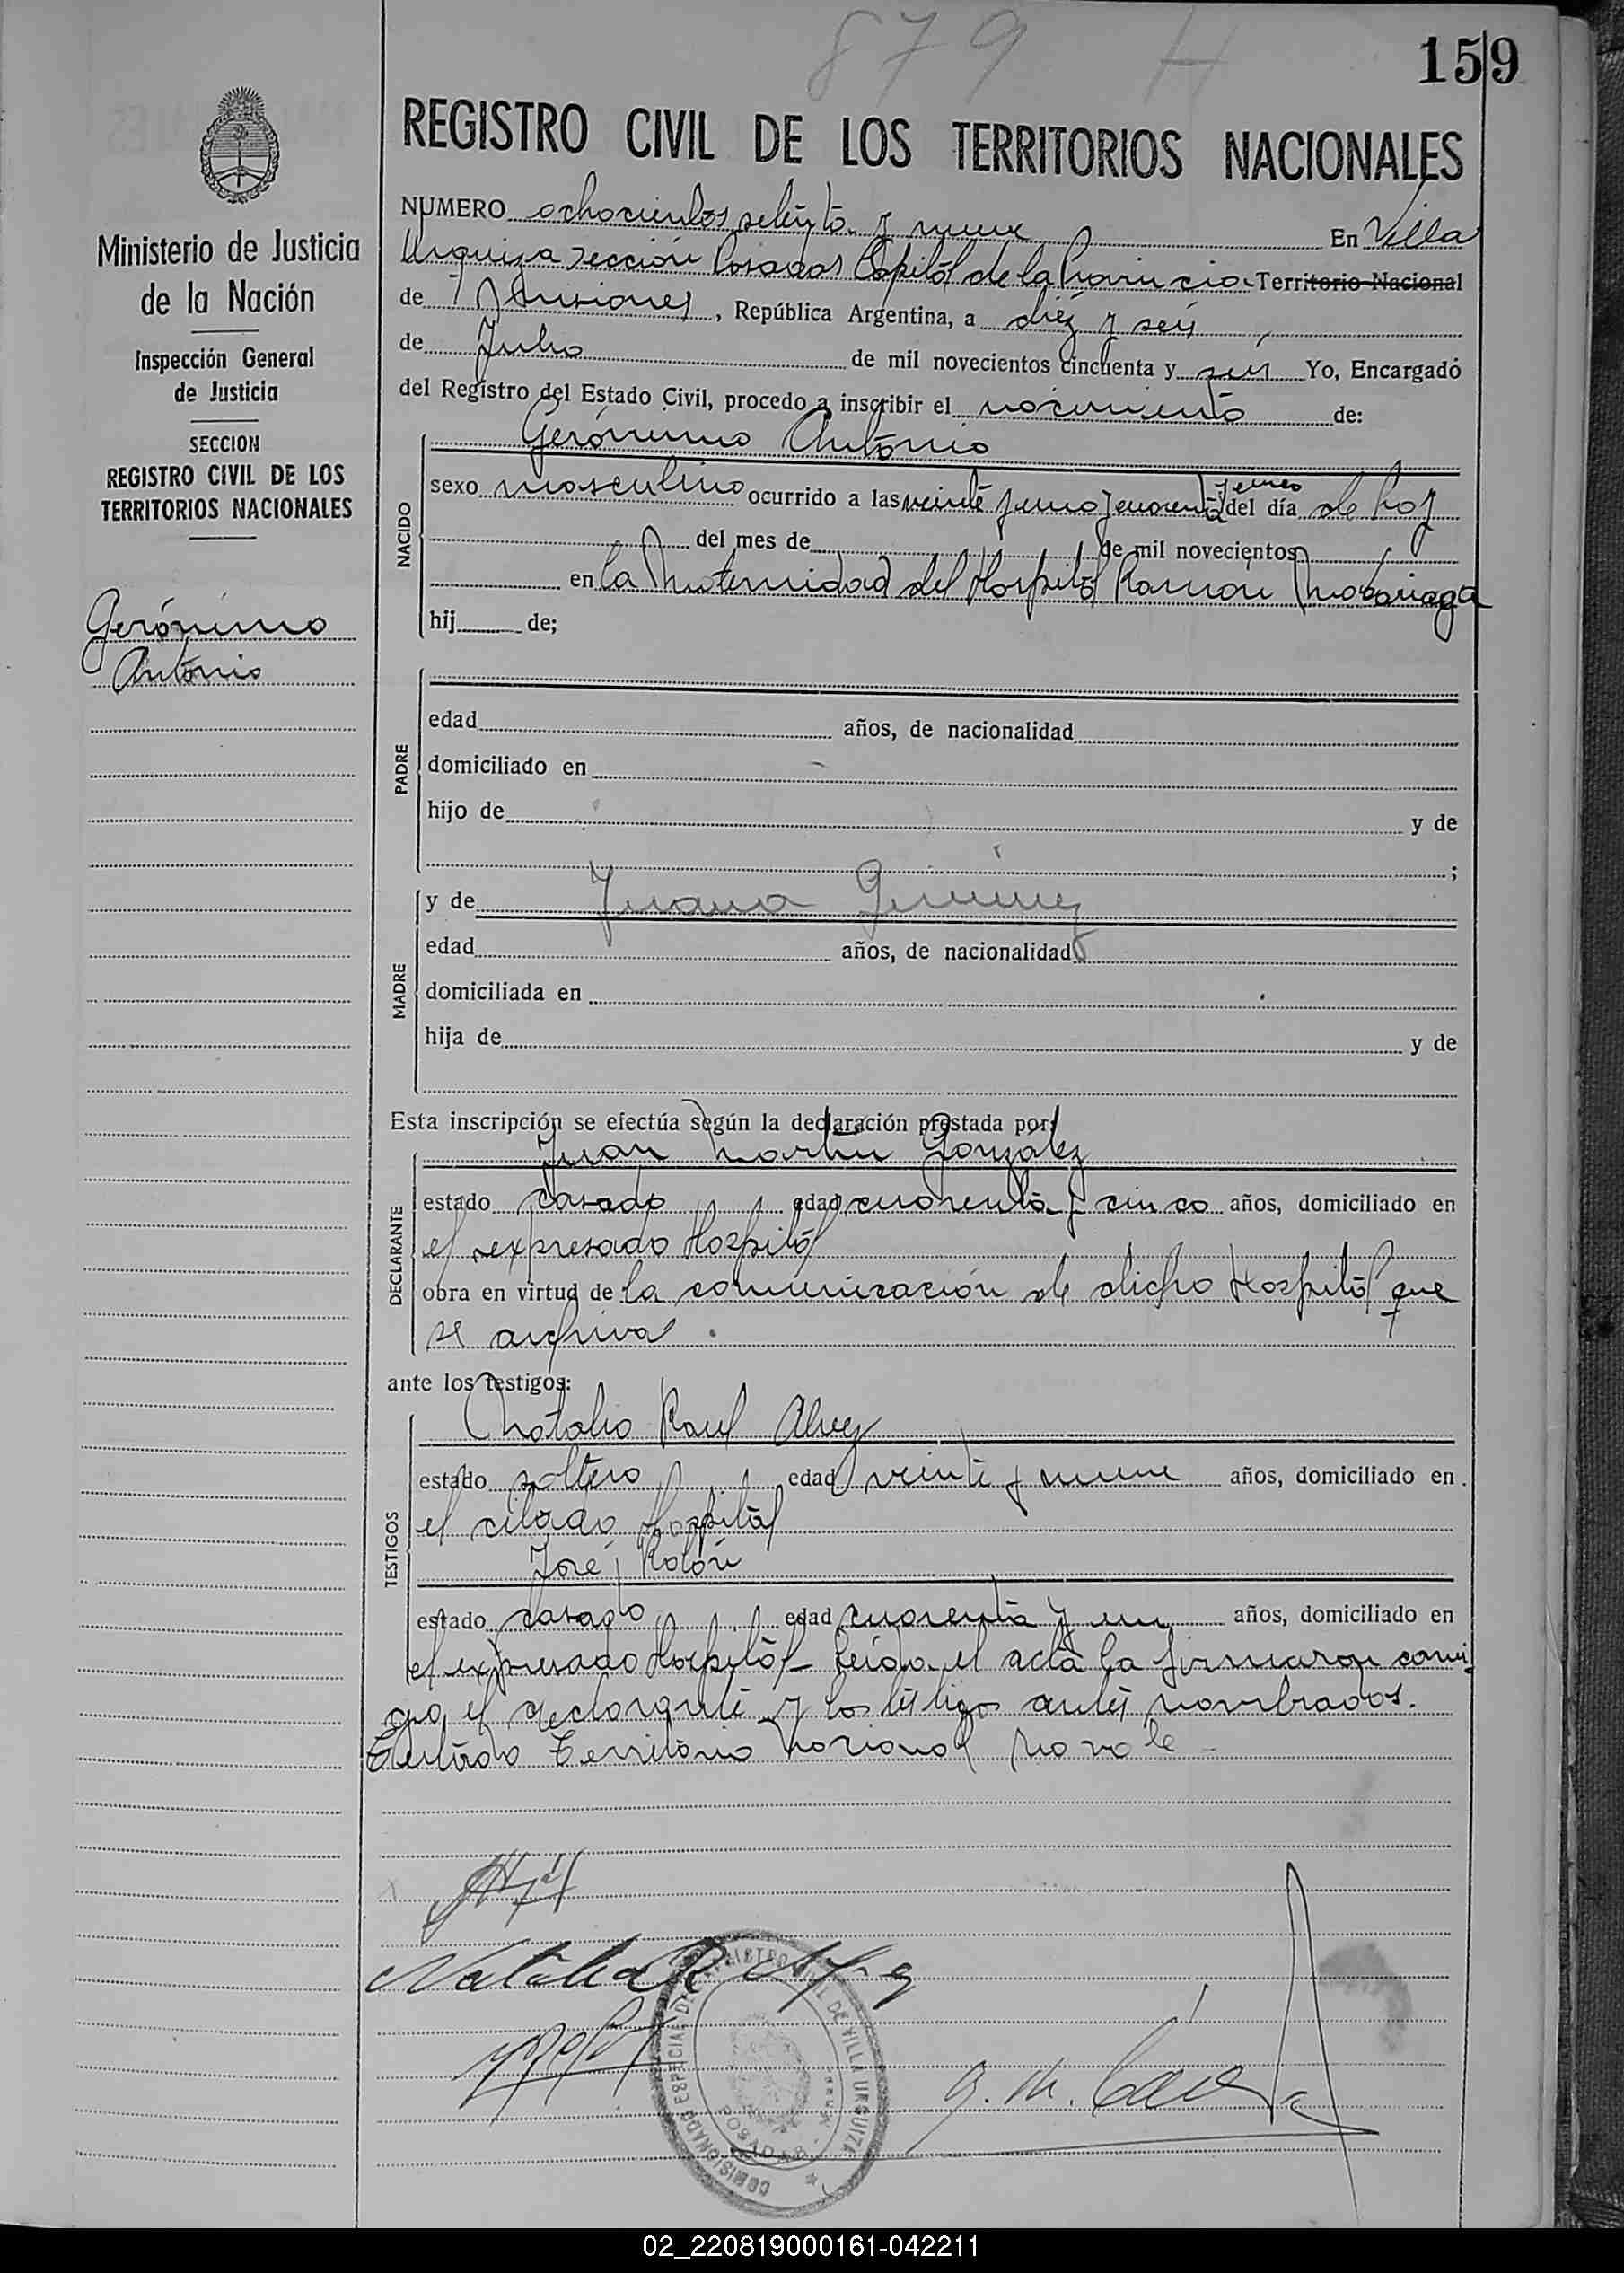 879 H
159
REGISTRO CIVIL DE LOS TERRITORIOS NACIONALES
Ministerio de Justicia
de la Nación
Inspección General
de Justicia
SECCION
REGISTRO CIVIL DE LOS
TERRITORIOS NACIONALES
Gerónimo
Antonio
NUMERO ochocientos setenta y nueve En Villa
Urquiza Sección Posadas Capital de la Provincia Territorio Nacional
de Misiones, República Argentina, a diez y seis
de Julio de mil novecientos cincuenta y seis Yo, Encargado
del Registro del Estado Civil, procedo a inscribir el nacimiento de:
Gerónimo Antonio
NACIDO
sexo masculino ocurrido a las veinte y cuarenta del día de hoy
del mes de de mil novecientos
en la Maternidad del Hospital Ramón Madariaga
hij de;
PADRE
edad años, de nacionalidad
domiciliado en
hijo de y de
;
MADRE
y de Juana Giménez
edad años, de nacionalidad
domiciliada en
hija de y de
Esta inscripción se efectúa según la declaración prestada por:
DECLARANTE
Juan Martin González
estado casado edad cuarenta y cinco años, domiciliado en
el expresado Hospital
obra en virtud de la comunicación de dicho Hospital que
se archiva.
ante los testigos:
TESTIGOS
Natalio Raul Alvez
estado soltero edad veinte y nueve años, domiciliado en
el citado Hospital
José Rolón
estado casado edad cuarenta y un años, domiciliado en
el expresado Hospital - Leída el acta la firmaron conmi-
go, el declarante y los testigos antes nombrados.
Testado Territorio Nacional no vale -
COMISIONADO ESPECIAL DEL REGISTRO CIVIL DE VILLA URQUIZA
POSADAS - Misiones
02_220819000161-042211